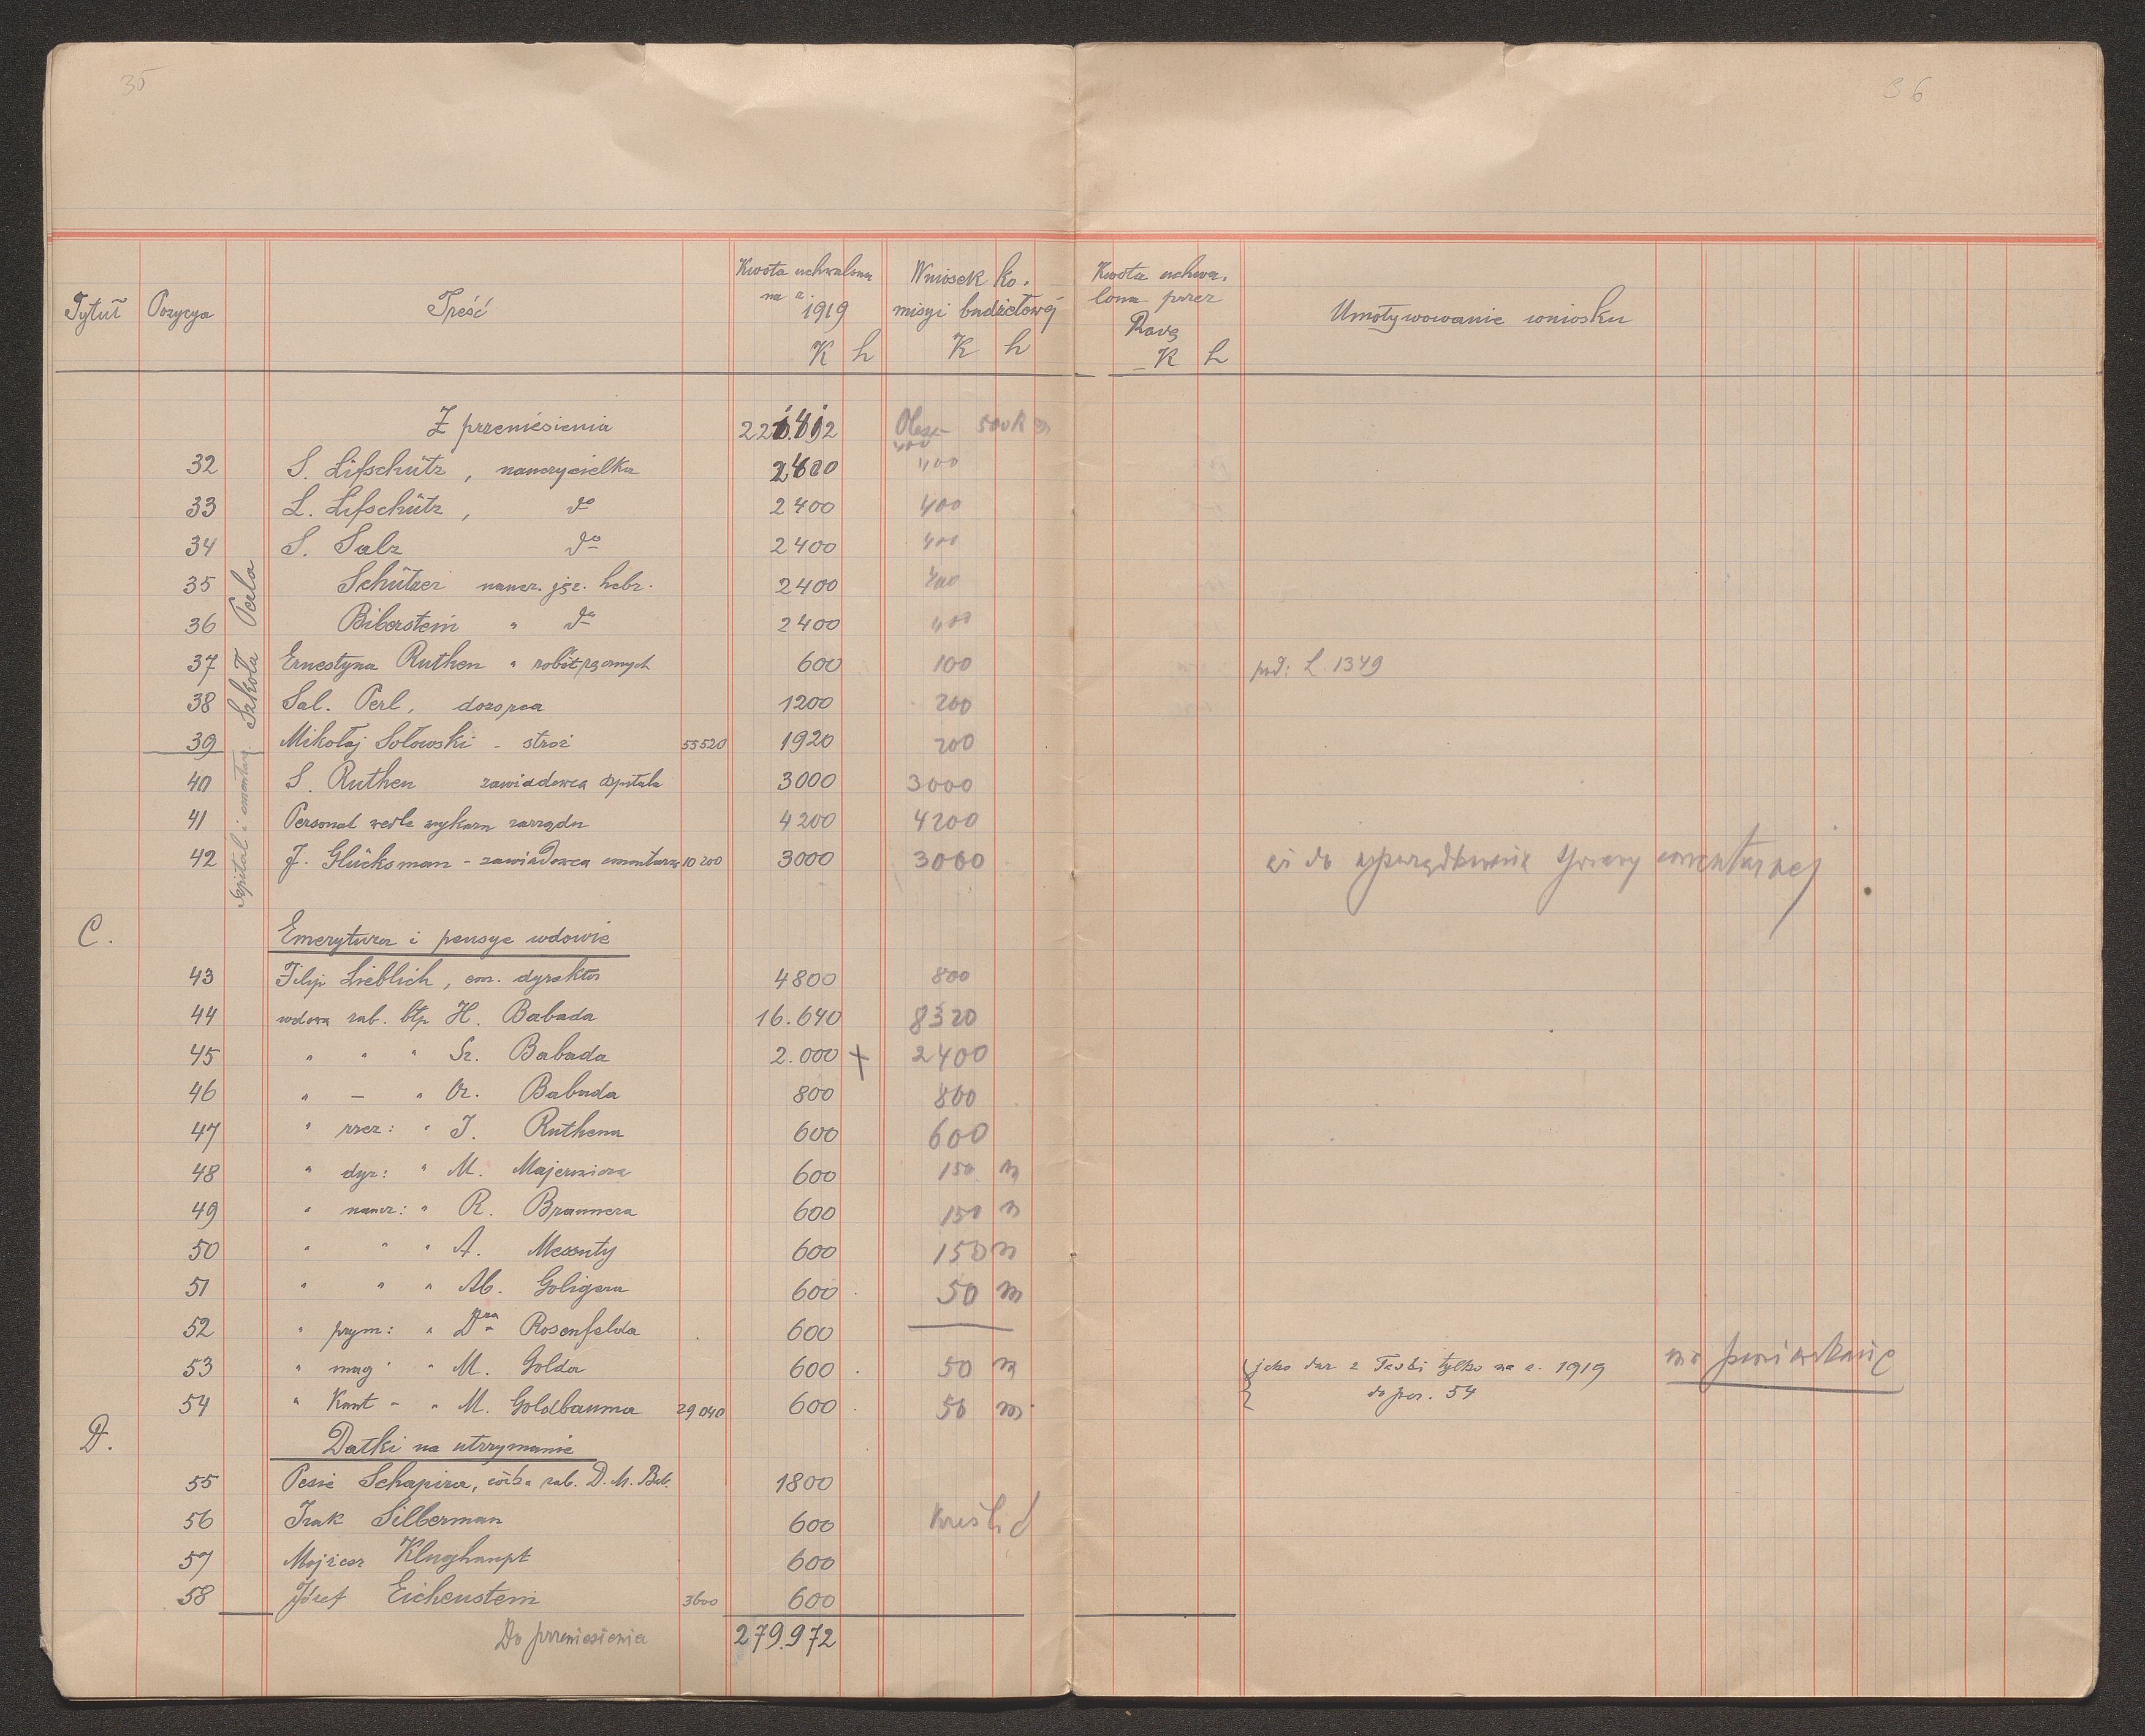 35
36
Tytuł Pozycya Treść Kwota uchwalona na r. 1919 K h Wniosek Komisyi budżetowej K h Kwota uchwalona przez Radę K h Umotywowanie wniosku
Z przeniesienia 500 K
32 S. Lifschütz, nauczycielka 2400 400
33 L. Lifschütz, do 2400 400
34 S. Salz do 2400 400
35 Schützer naucz. jęz. hebr. 2400 400
36 Biberstein " do 2400 400
37 Ernestyna Ruthen " robót ręcznych 600 100 pod: L 1349
38 Sal. Perl, dozorca 1200 200
39 Mikołaj Sołowski - stroż 55520 1920 200
Szkoła Perla
40 S. Ruthen zawiadowca szpitala 3000 3000
41 Personal wedle wykazu zarządu 4200 4200
42 J. Glücksman - zawiadowca cmentarza 10200 3000 3000 aż do uporządkowania sprawy cmentarnej
Szpital i cmentarz
C. Emerytura i pensye wdowie
43 Filip Lieblich, em. dyrektor 4800 800
44 wdowa rab. błp H. Babada 16.640 8320
45 " " " Sz. Babada 2.000 + 2400
46 " - " Oz. Babada 800 800
47 " rzez: " J. Ruthena 600 600
48 " dyr: " M. Majerowicza 600 150 m
49 " naucz: " R. Braunera 600 150 m
50 " " " A. Messuty 600 150 m
51 " " " Ab. Goligera 600 50 m
52 " prym: " Dra Rosenfelda 600
53 " mag " M. Golda 600 50 m jako dar z Taubi tylko na r. 1919
54 " Kant - " M. Goldbauma 29040 600 50 m do poz. 54
D. Datki na utrzymanie
55 Pesie Schapira, córka rab. D. M. Bab. 1800
56 Izak Silberman 600 kreślić
57 Mojżesz Klughaupt 600
58 Józef Eichenstein 3600 600
Do przeniesienia 279.972